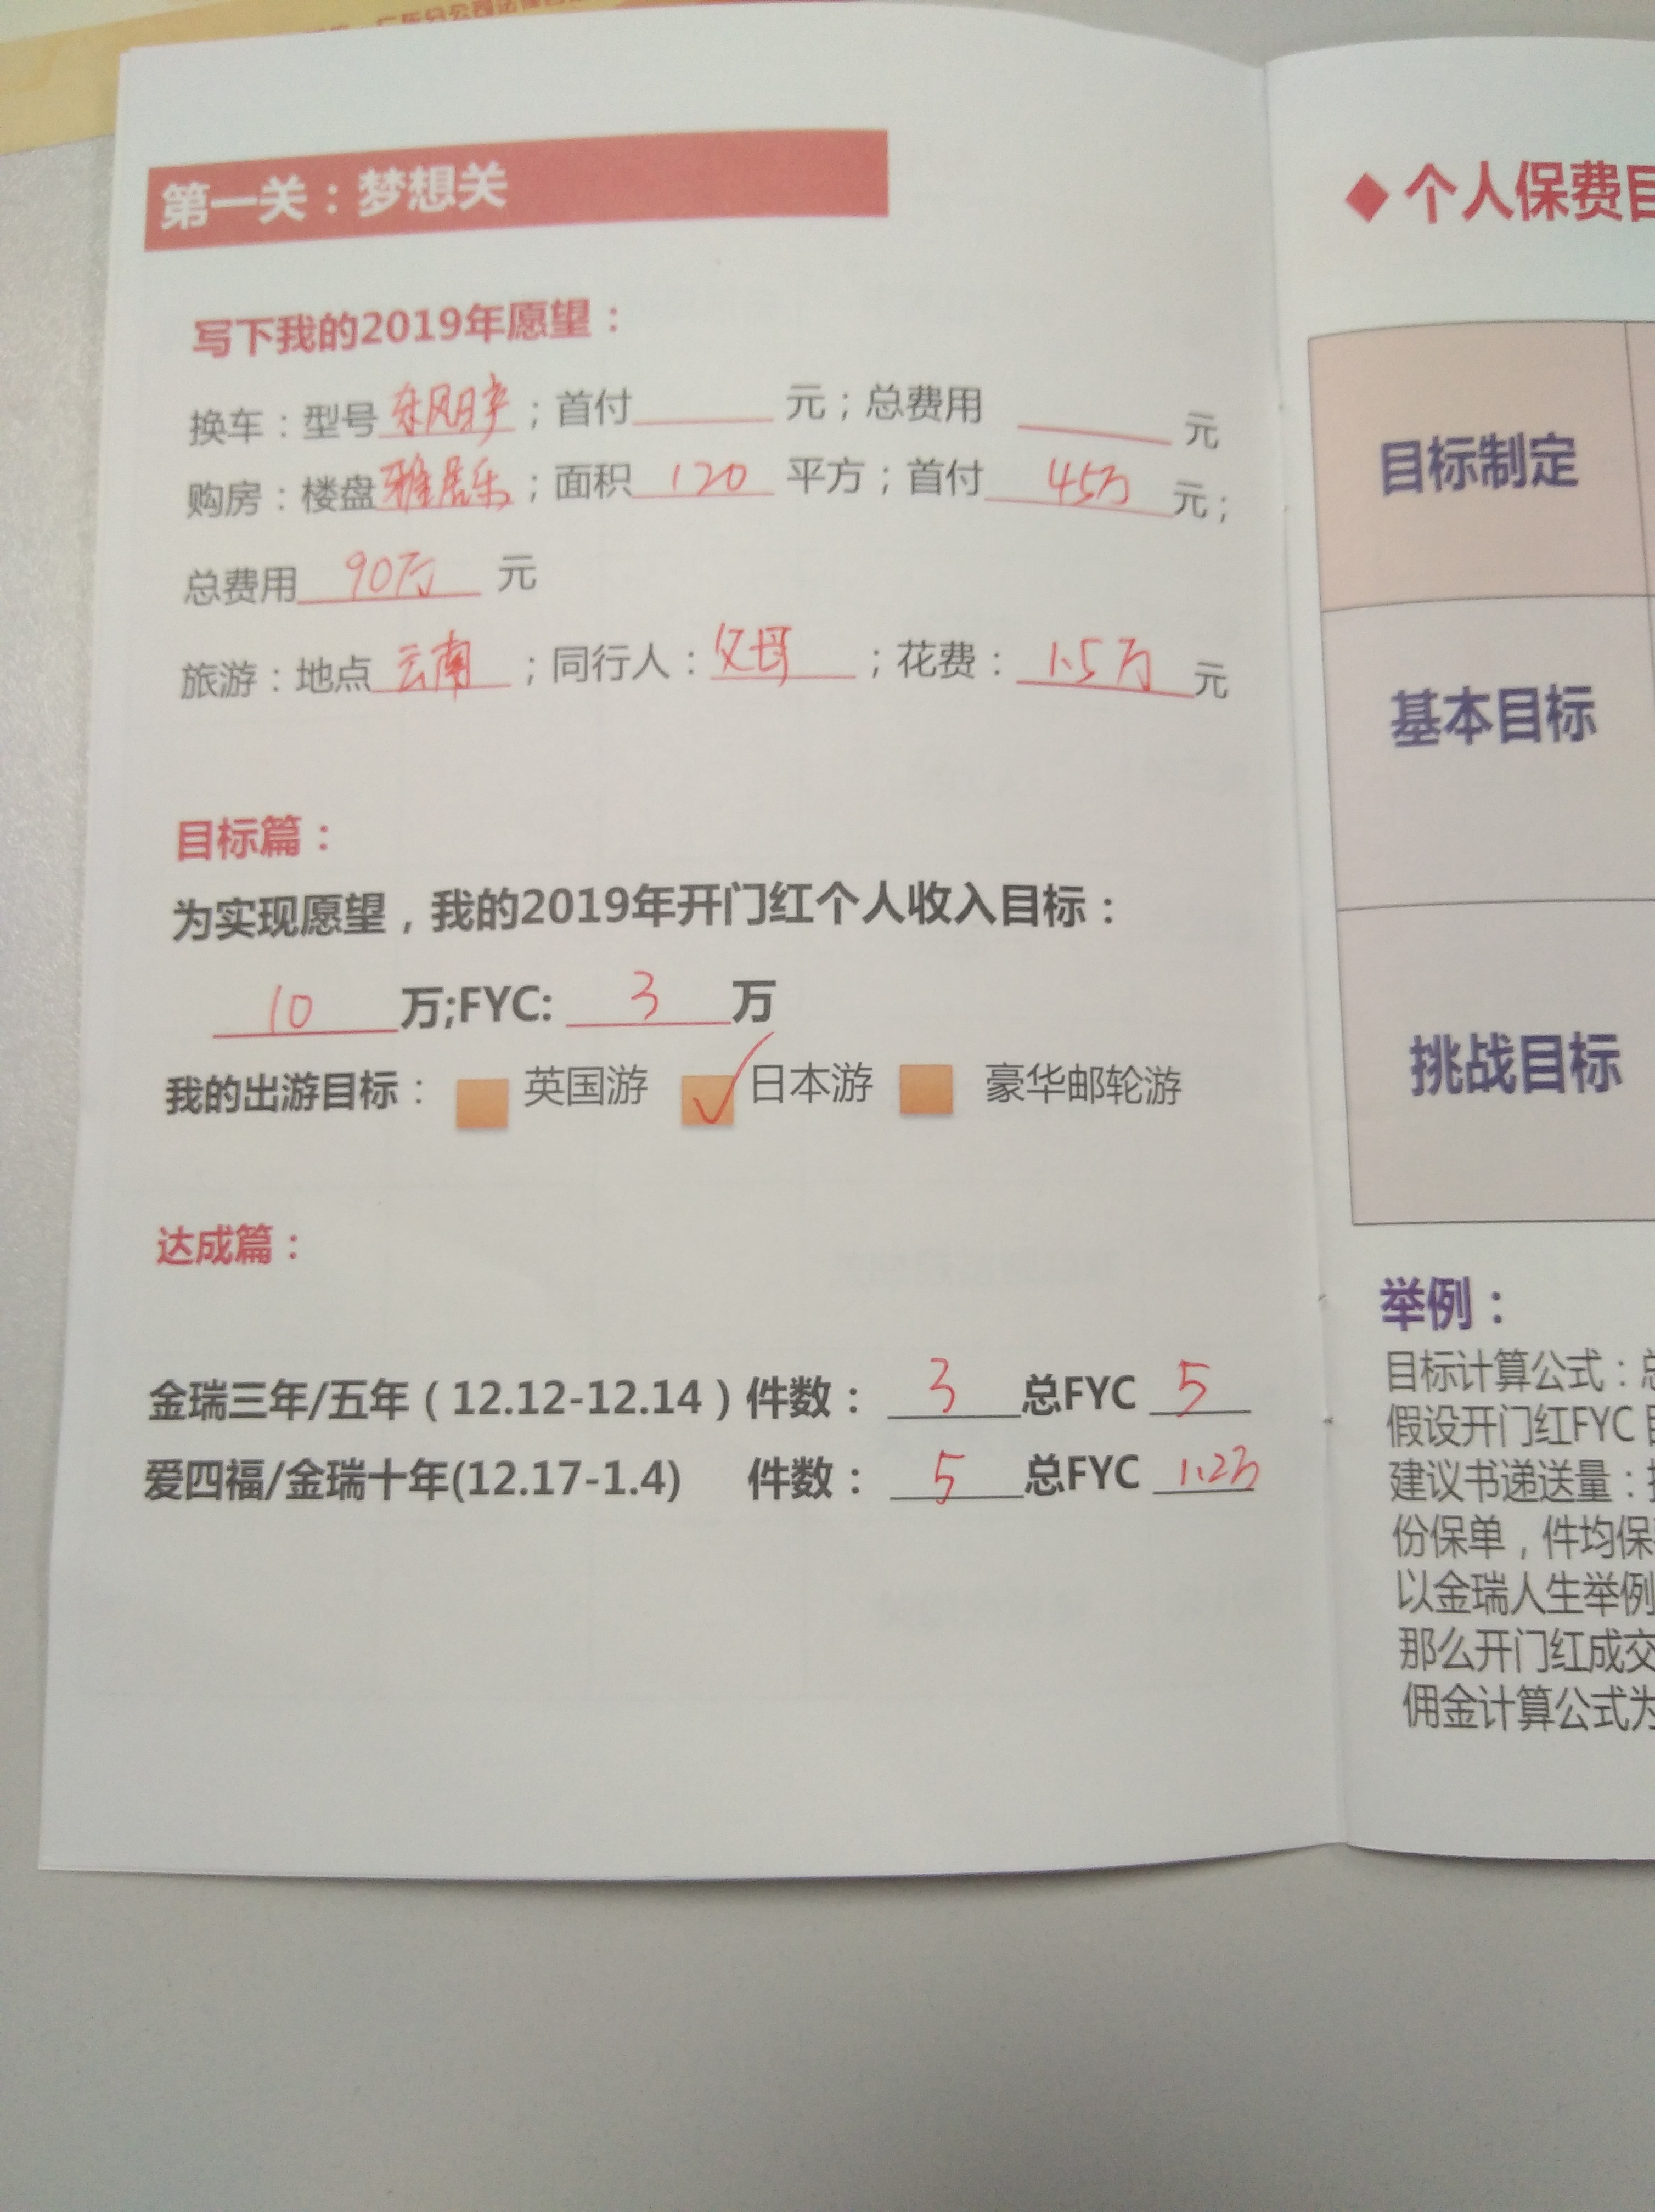 第一关：梦想关
写下我的2019年愿望：
换车：型号 东风日产 ；首付 元；总费用 元
购房：楼盘 雅居乐 ；面积 120 平方；首付 45万 元；
总费用 90万 元
旅游：地点 云南 ；同行人：父母 ；花费： 1.5万 元
目标篇：
为实现愿望，我的2019年开门红个人收入目标：
10 万;FYC: 3 万
我的出游目标： 英国游 ✓ 日本游 豪华邮轮游
达成篇：
金瑞三年/五年（12.12-12.14）件数： 3 总FYC 5
爱四福/金瑞十年(12.17-1.4) 件数： 5 总FYC 1.2万
◆ 个人保费目
目标制定
基本目标
挑战目标
举例：
目标计算公式：总
假设开门红FYC 目
建议书递送量：
份保单，件均保
以金瑞人生举例
那么开门红成交
佣金计算公式为